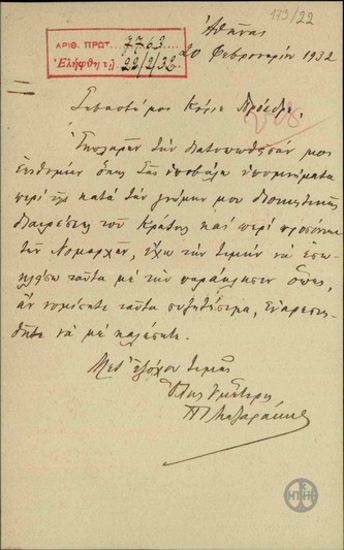 173/22
Ἀθῆναι
20 Φεβρουαρίου 1932
ΑΡΙΘ. ΠΡΩΤ. 7763
Ἐλήφθη τῇ 22/2/32
Σεβαστέ μου Κύριε Πρόεδρε,
τὴν διατυπωθεῖσάν μοι
ἐπιθυμίαν ὅπως Σᾶς ὑποβάλω ὑπομνήματα
περὶ τῆς κατὰ τὴν γνώμην μου διοικητικῆς
διαιρέσεως τοῦ Κράτους καὶ περὶ προσόντων
τῶν Νομαρχῶν, ἔχω τὴν τιμὴν νὰ ἐσω-
κλείσω ταῦτα μὲ τὴν παράκλησιν ὅπως,
ἂν νομίσητε ταῦτα συζητήσιμα, εὐαρεστη-
θῆτε νὰ μὲ καλέσητε.
Μετ' ἐξόχου τιμῆς
Ὅλως Ὑμέτερος